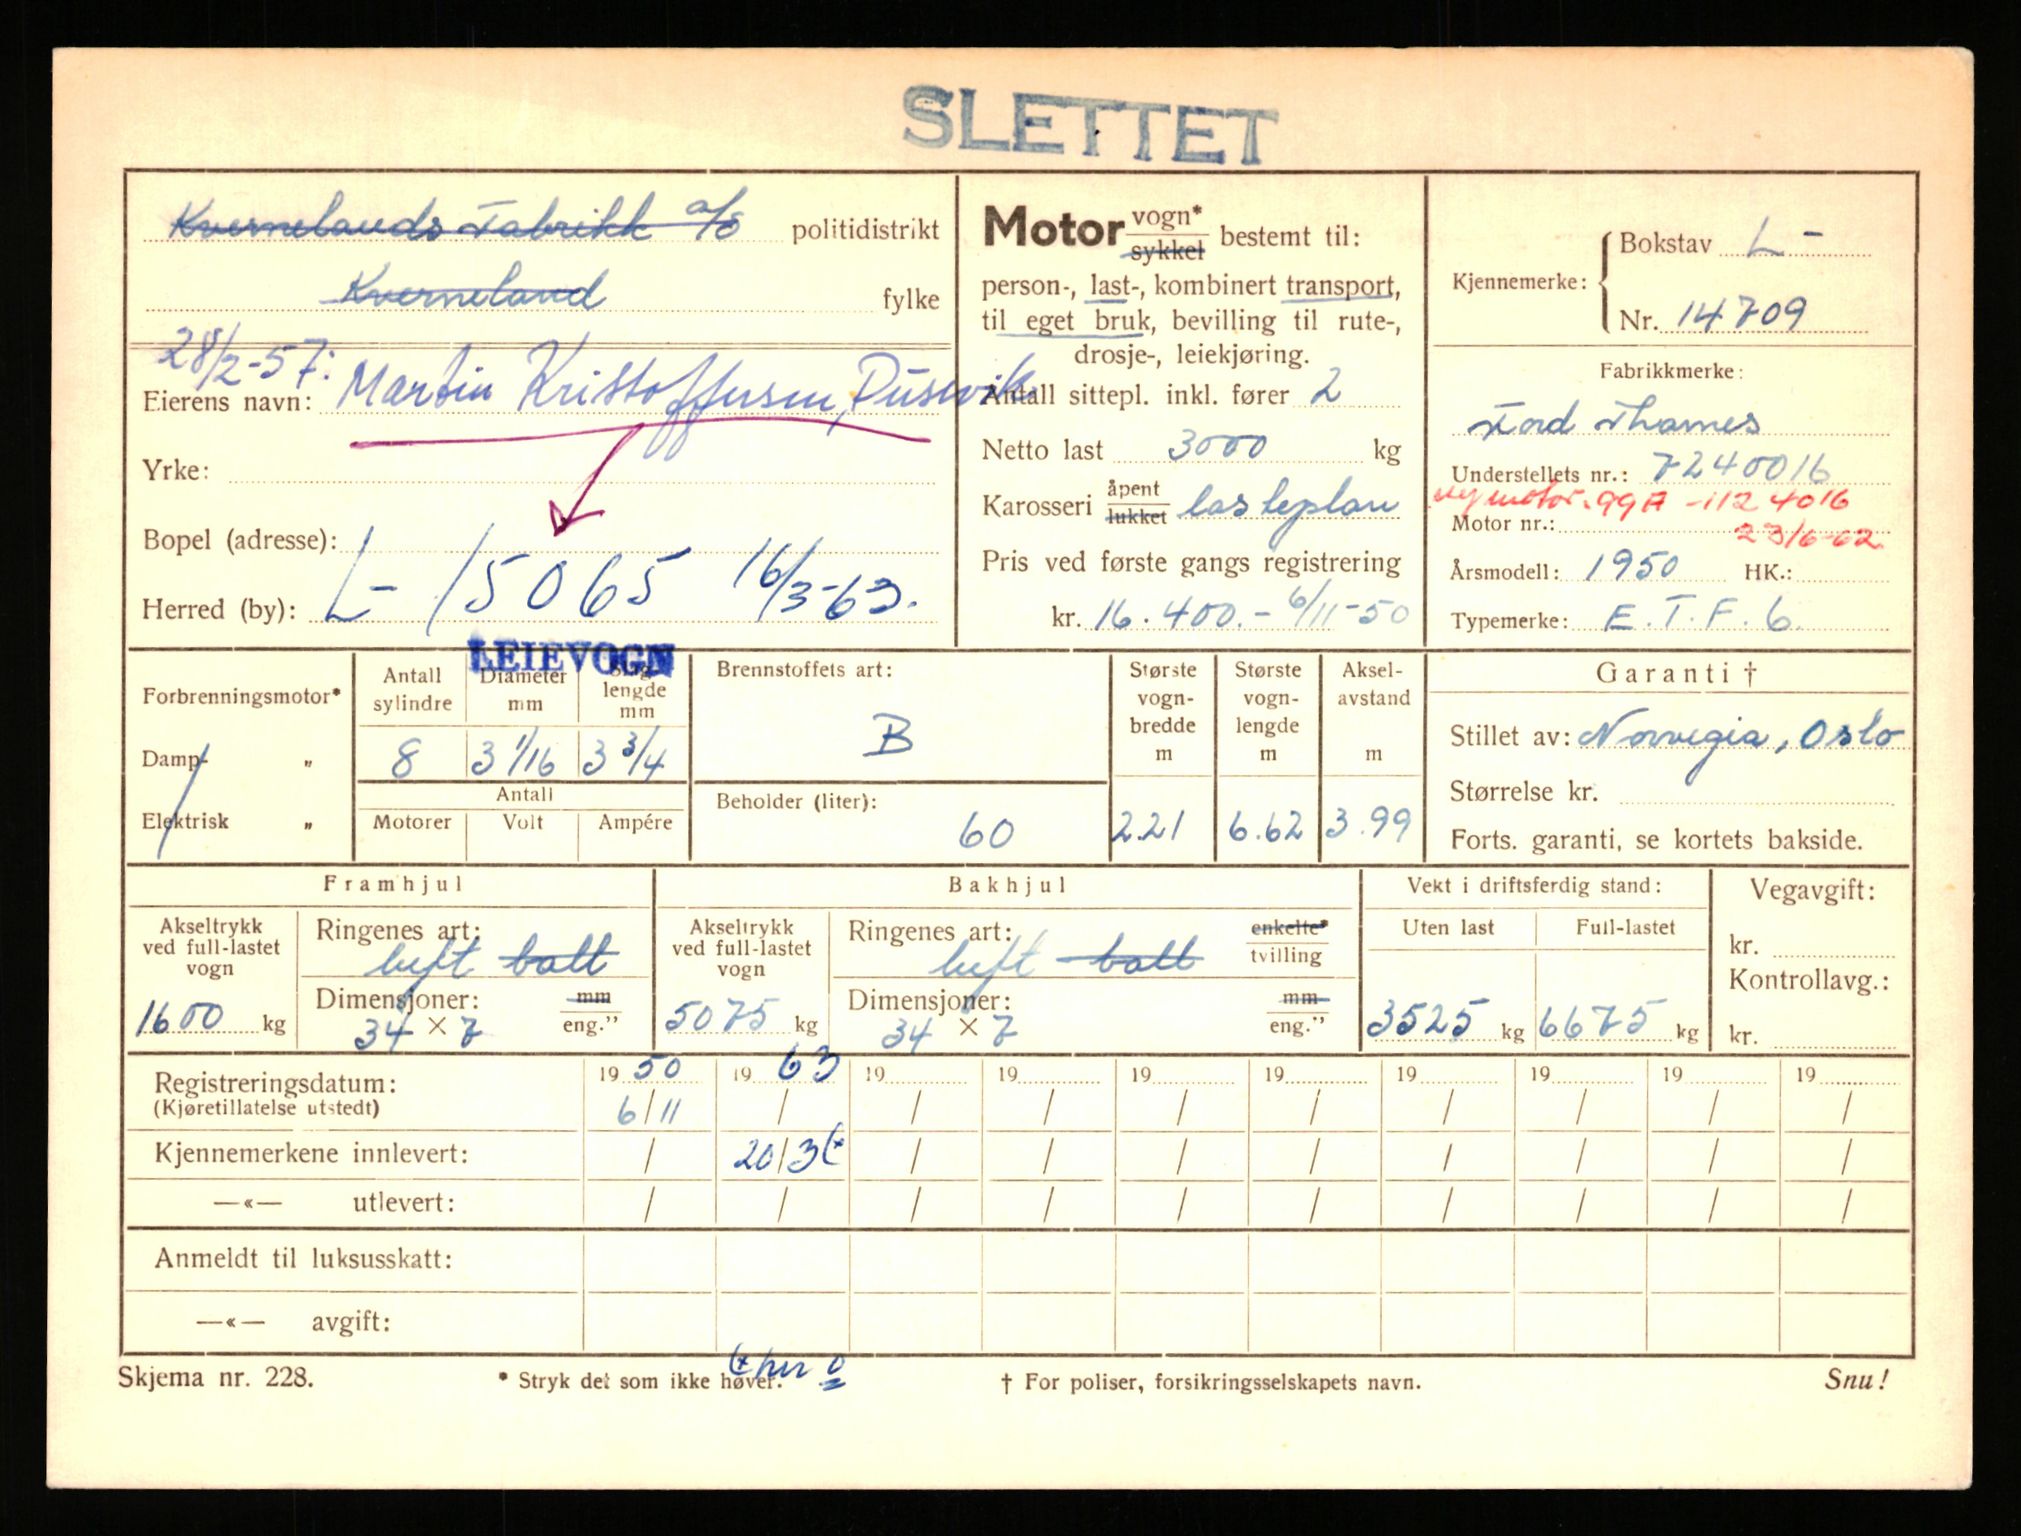 SLETTET
Kvernelands Fabrikk a/s politidistrikt
Kverneland fylke
28/2-57:
Eierens navn: Martin Kristoffersen, Dusevik
Yrke:
Bopel (adresse):
Herred (by): L- 15065 16/3-63.
LEIEVOGN
Motor vogn* sykkel bestemt til:
person-, last-, kombinert transport,
til eget bruk, bevilling til rute-,
drosje-, leiekjøring.
Antall sittepl. inkl. fører 2
Netto last 3000 kg
Karosseri åpent lukket lasteplan
Pris ved første gangs registrering
kr. 16.400.- 6/11-50
Kjennemerke: Bokstav L-
Nr. 14709
Fabrikkmerke:
Ford Thames
Understellets nr.: 7240016
ny motor. 99A -1124016
Motor nr.: 23/6-62
Årsmodell: 1950 HK.:
Typemerke: E.T.F.6.
Forbrenningsmotor*
Damp- „
Elektrisk „
Antall sylindre
Diameter mm
Slaglengde mm
8 3 1/16 3 3/4
Antall
Motorer Volt Ampére
Brennstoffets art:
B
Beholder (liter):
60
Største vogn-bredde m
2.21
Største vogn-lengde m
6.62
Aksel-avstand m
3.99
Garanti †
Stillet av: Norvegia, Oslo
Størrelse kr.
Forts. garanti, se kortets bakside.
Framhjul
Akseltrykk ved full-lastet vogn
1600 kg
Ringenes art:
luft ball
Dimensjoner: mm
34 × 7 eng.”
Bakhjul
Akseltrykk ved full-lastet vogn
5075 kg
Ringenes art: enkelte*
luft ball tvilling
Dimensjoner: mm
34 × 7 eng.”
Vekt i driftsferdig stand:
Uten last Full-lastet
3525 kg 6675 kg
Vegavgift:
kr.
Kontrollavg.:
kr.
Registreringsdatum: 19 50 19 63 19 19 19 19 19 19 19 19
(Kjøretillatelse utstedt) 6/11 / / / / / / / / /
Kjennemerkene innlevert: / 20/3 (* / / / / / / / /
—«— utlevert: / / / / / / / / / /
Anmeldt til luksusskatt:
—«— avgift:
Skjema nr. 228. * Stryk det som ikke høver. † For poliser, forsikringsselskapets navn. Snu!